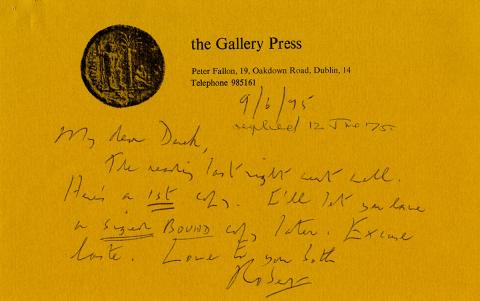 the Gallery Press
Peter Fallon, 19, Oakdown Road, Dublin, 14
Telephone 985161
9/6/75
replied 12 June 75
My dear Derek,
The reading last night went well.
Here's a 1st copy. I'll let you have
a signed BOUND copy later. Excuse
haste. Love to you both
Robert